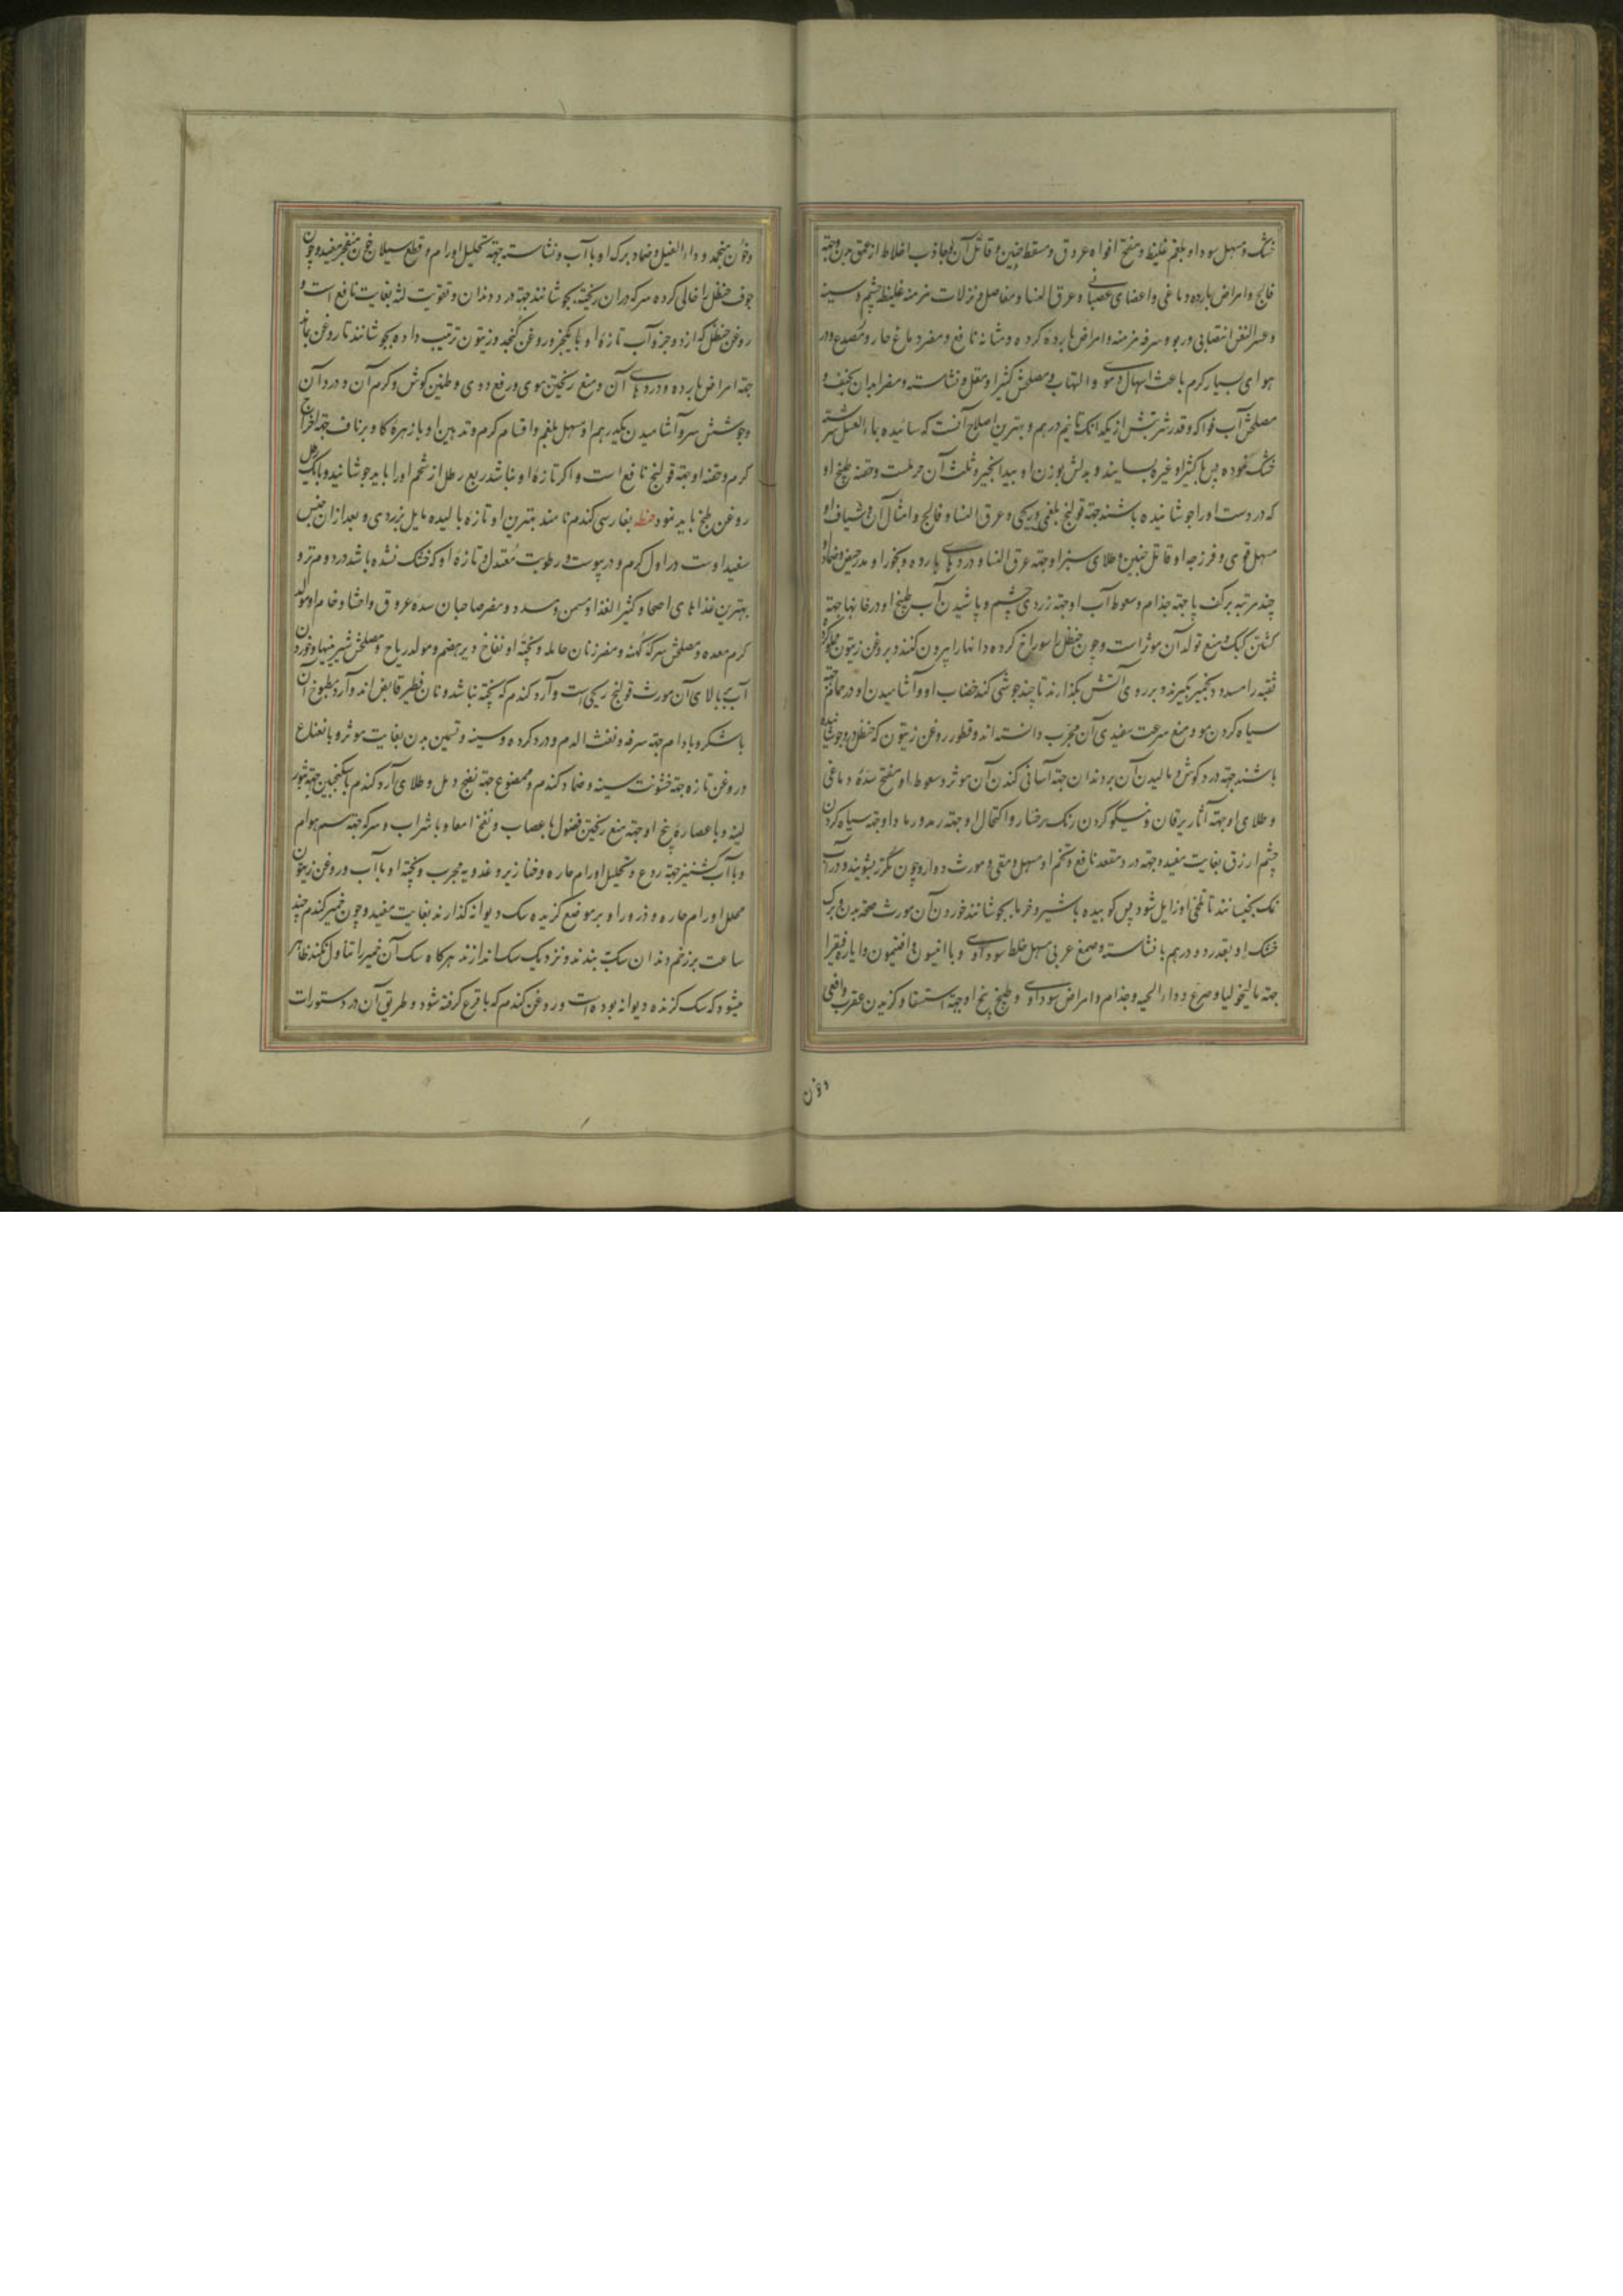 خشک و مسهل سودا و بلغم غلیظ و مفتح افواه عروق و مسقط جنین و قاتل آن و جاذب اخلاط از عمق بدن و جهة
فالج و امراض بارده دماغی و اعضای عصبانی و عرق النسا و مفاصل و نزلات مزمنه غلیظه چشم و سینه
و عسر النفس انتصابی و ربو و سرفه مزمنه و امراض بارده کرده و مثانه نافع و مضر دماغ حار و مصدع و در
هوای بسیار کرم باعث اسهال دموی و التهاب و مصلحش کثیرا و مقل و نشاسته و مضر ابدان نحیف و
مصلحش آب فواکه و قدر شربتش از یکدانک تا نیم درهم و بهترین اصلاح آنست که سائیده بماء العسل سرشته
خشک نموده پس با کثیرا و غیره بسایند و بدلش بوزن او بیدانجیر و ثلث آن حرملست و حقنه طبیخ او
که درست او را جوشانیده باشند جهة قولنج بلغمی و ریحی و عرق النسا و فالج و امثال آن و شیاف او
مسهل قوی و فرزجه او قاتل جنین و طلای سبز او جهة عرق النسا و دردهای بارده و بخور او مدر حیض و ضماد او
چند مرتبه بر کف پا جهة جذام و سعوط آب او جهة زردی چشم و پاشیدن آب طبیخ او در خانها جهة
کشتن کیک و منع تولد آن موثر است و چون حنظل را سوراخ کرده دانها را بیرون کنند و بروغن زیتون مملو کرده
ثقبه را مسدود بخمیر بگیرند و بر روی آتش بگذارند تا چند جوشی کند خضاب او و آشامیدن او در حمام جهة
سیاه کردن مو و منع سرعت سفیدی آن مجرب دانسته اند و قطور روغن زیتون که حنظل در و جوشانیده
باشند جهة درد کوش و مالیدن آن بر دندان جهة آسانی کندن آن موثر و سعوط او مفتح سده دماغی
و طلای او جهة آثار یرقان و نیکو کردن رنک رخسار و اکتحال او جهة رمد و رماد او جهة سیاه کردن
چشم ازرق بغایت مفید و جهة درد مقعد نافع و تخم او مسهل و مقی و مورث دوار و چون مکرر بشویند و در آب
نمک بخیسانند تا تلخی او زایل شود پس کوبیده با شیر و خرما بجوشانند خوردن آن مورث صحة بدن و برک
خشک او بقدر دو درهم با نشاسته و صمغ عربی مسهل خلط سوداوی و با انیسون و افتیمون و ایاره فیقرا
جهة مالیخولیا و صرع و داء الحیه و جذام و امراض سوداوی و طبیخ بیخ او جهة استسقا و کزیدن عقرب و افعی
و خون
و خون منجمد و داء الفیل و ضماد برک او با آب و نشاسته جهة تحلیل اورام و قطع سیلان خون منفجر مفید و چون
جوف حنظل را خالی کرده سرکه در آن ریخته بجوشانند جهة درد دندان و تقویت لثه بغایت نافع است و
روغن حنظل که از دو جزو آب تازه او با یکجزو روغن کنجد و زیتون ترتیب داده بجوشانند تا روغن بماند
جهة امراض بارده و دردهای آن و منع ریختن موی و رفع دوی و طنین کوش و کرم آن و درد آن
و جوشش سر و آشامیدن یکدرهم او مسهل بلغم و اقسام کرم و تدهین او با زهره کاو بر ناف جهة اخراج
کرم و حقنه او جهة قولنج نافع است و اکر تازه او نباشد ربع رطل از شحم او را باید جوشانید و با یک رطل
روغن طبخ باید نمود حنطه بفارسی کندم نامند بهترین او تازه بالیده مایل بزردی و بعد از آن جنس
سفید اوست در اول کرم و در یبوست و رطوبت معتدل و تازه او که خشک نشده باشد در دوم تر و
بهترین غذاهای اصحا و کثیر الغذا و مسمن و مسدد و مضر صاحبان سده عروق و احشا و خام او مولد
کرم معده و مصلحش سرکه کهنه و مضر زنان حامله و پخته او نفاخ و دیر هضم و مولد ریاح و مصلحش شیرینیها و خوردن
آب ببالای آن مورث قولنج ریحی است و آرد کندم که پخته نباشد و نان فطیر قابض اند و آرد مطبوخ آن
با شکر و بادام جهة سرفه و نفث الدم و درد کرده و سینه و تسمین بدن بغایت موثر و با نعناع
و روغن تازه جهة خشونت سینه و ضماد کندم ممضوغ جهة نضج دمل و طلای آرد کندم با سکنجبین جهة بثور
لینه و با عصاره بنج او جهة منع ریختن فضول باعصاب و نفخ امعا و با شراب و سرکه جهة سم هوام
و با آب کشنیز جهة ردع و تحلیل اورام حاره و خنازیر و غدد بیه مجرب و پخته او با آب و روغن زیتون
محلل اورام حاره و ذرور او بر موضع کزیده سک دیوانه کذارند بغایت مفید و چون خمیر کندم چند
ساعت بر زخم دندان سک بندند و نزدیک سک اندازند هر کاه سک آن خمیر را تناول نکند ظاهر
میشود که سک کزنده دیوانه بوده است و روغن کندم که با قرع کرفته شود و طریق آن در دستورات